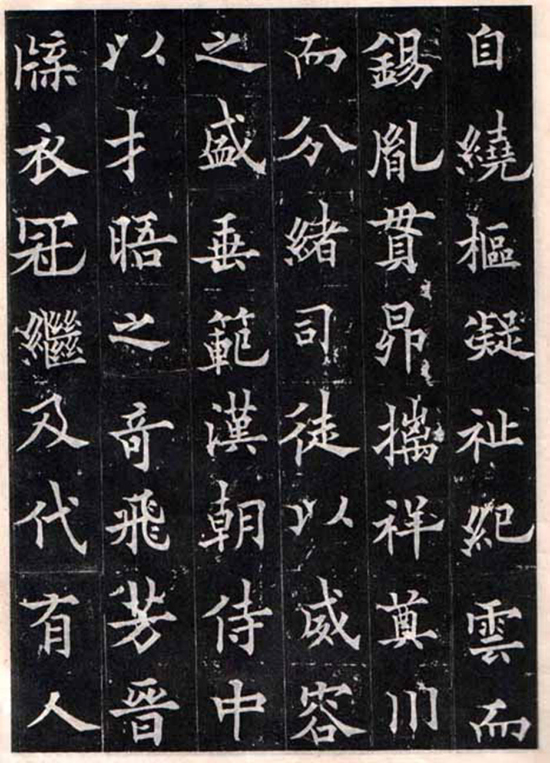 自繞樞凝祉紀雲而
錫胤貫昴攜祥奠川
而分緒司徒以威容
之盛垂範漢朝侍中
以才晤之奇飛芳晉
牒衣冠繼及代有人